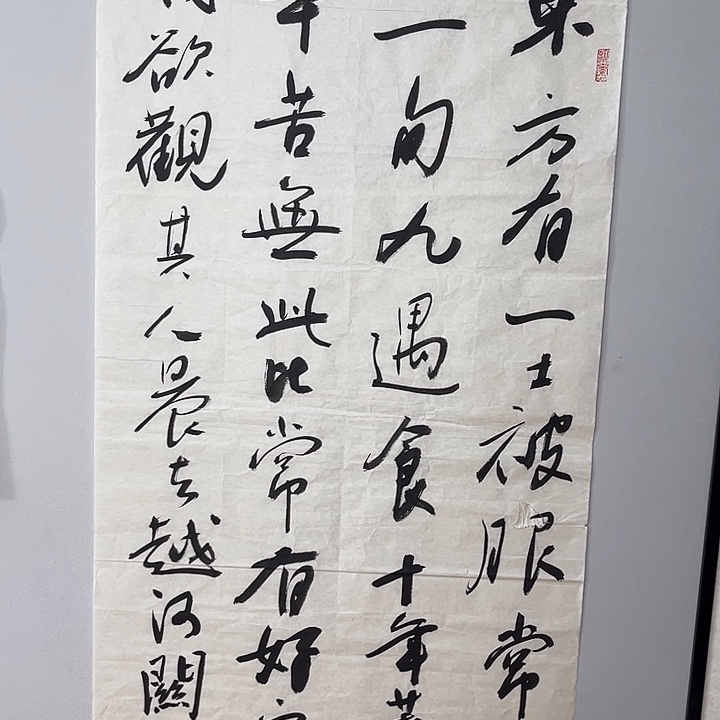 東方有一士被服常
旬九遇食十年
辛苦無此比常有好
欲觀其人晨去越河關